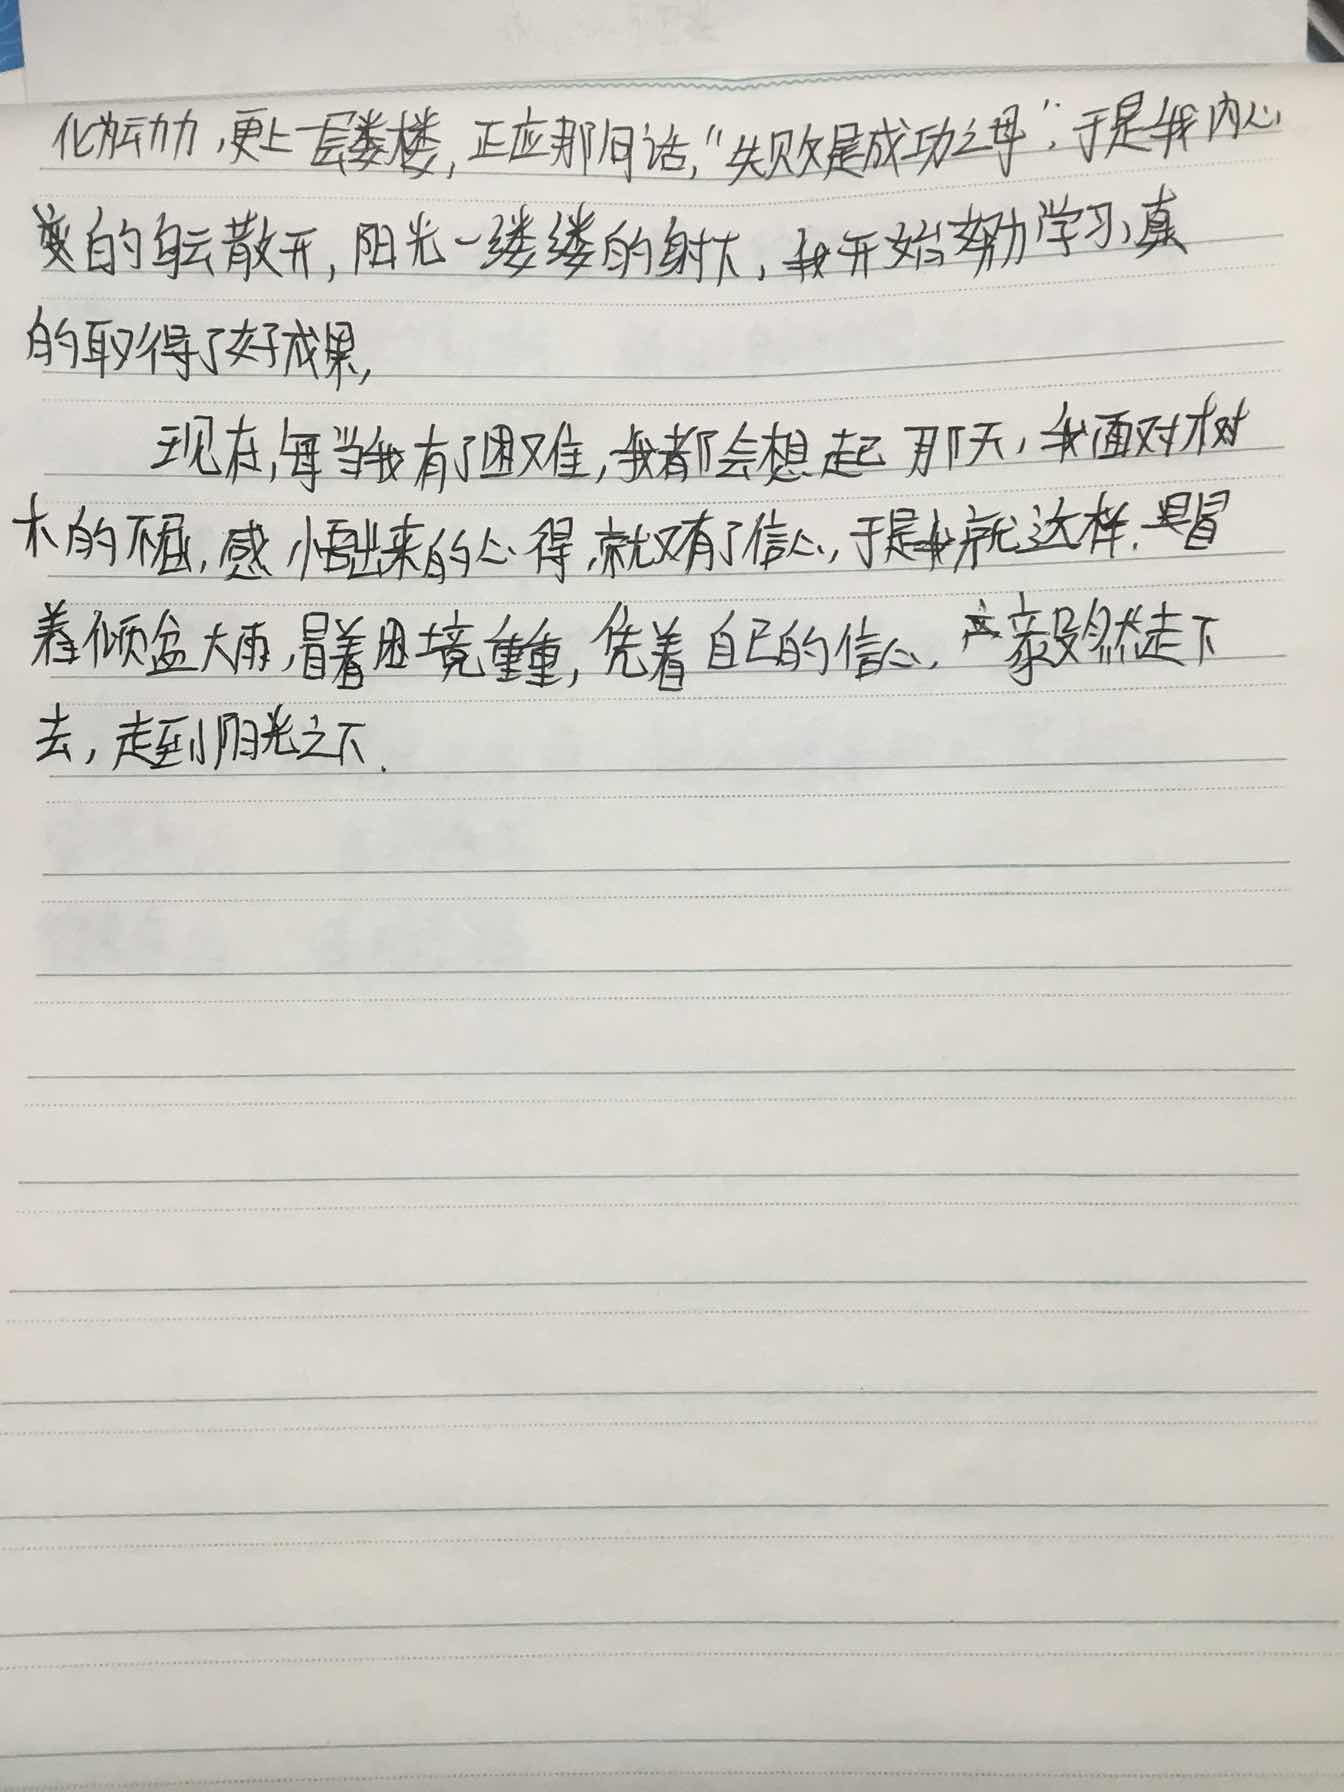 化为动力,更上一层楼,正应那句话,"失败是成功之母",于是我内心
的乌云散开,阳光一缕缕的射下,我开始努力学习,真
的取得了好成果,
现在,每当我有了困难,我都会想起那天,我面对树
木的不屈,感悟出来的心得,就又有了信心,于是我就这样,冒
着倾盆大雨,冒着困境重重,凭着自己的信心,毅然走下
去,走到阳光之下.